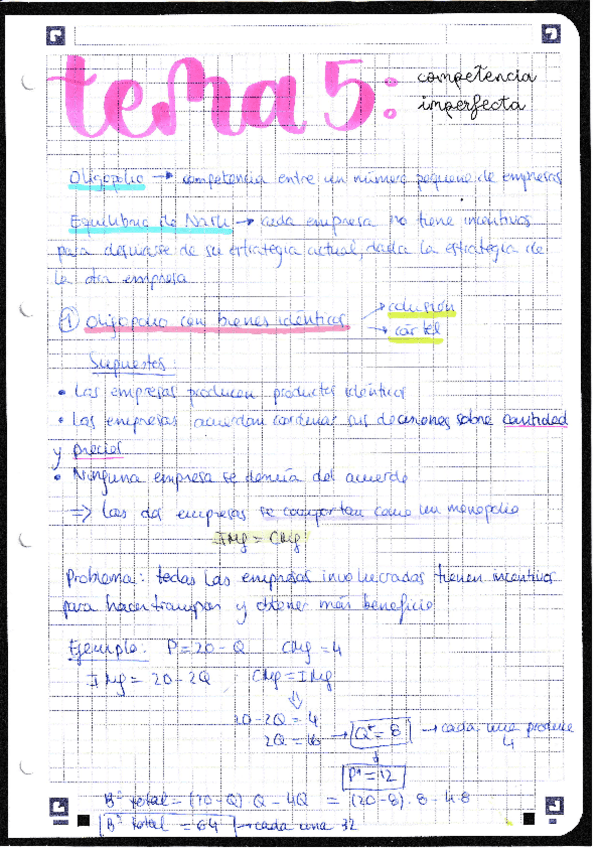 tema 5: competencia
imperfecta
Oligopolio → competencia entre un número pequeño de empresas
Equilibrio de Nash → cada empresa no tiene incentivos
para desviarse de su estrategia actual, dada la estrategia de
la otra empresa
① Oligopolio con bienes idénticos → colusión
→ cártel
Supuestos:
• Las empresas producen productos idénticos
• Las empresas acuerdan coordinar sus decisiones sobre cantidad
y precios
• Ninguna empresa se desvía del acuerdo
⇒ Las dos empresas se comportan como un monopolio
IMg = CMg
Problema: todas las empresas involucradas tienen incentivos
para hacer trampas y obtener más beneficio
Ejemplo: P = 20 - Q CMg = 4
IMg = 20 - 2Q CMg = IMg
⇓
20 - 2Q = 4
2Q = 16 → Q* = 8 → cada una produce
4
↓
P* = 12
Bº total = (20 - Q) Q - 4Q = (20 - 8) · 8 - 4·8
Bº total = 64 → cada una 32